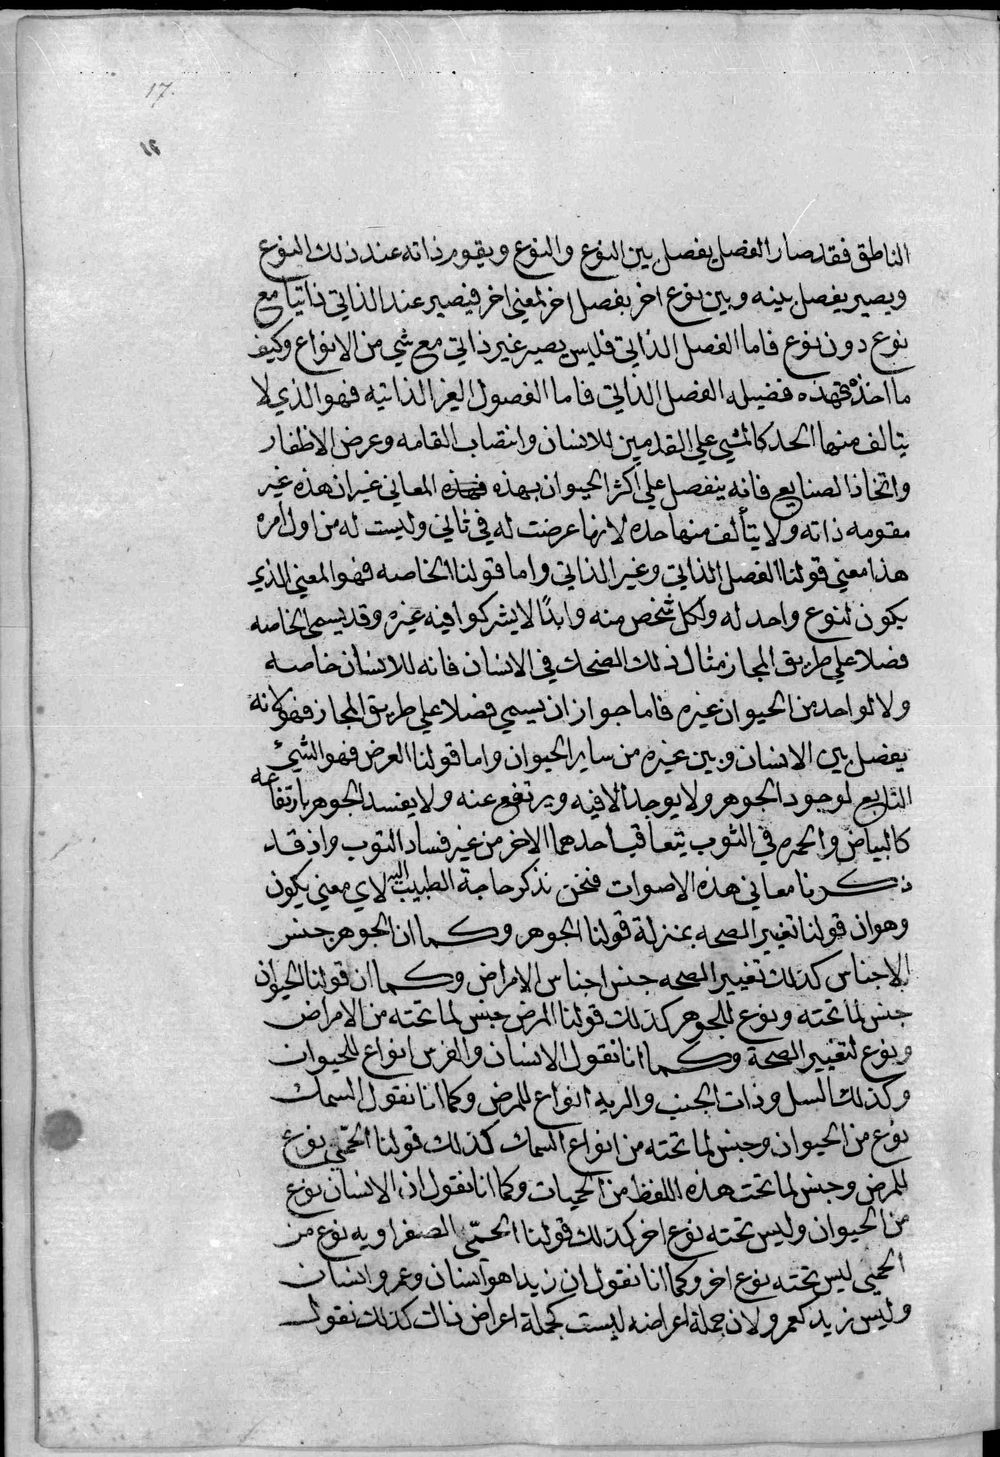 17.
الناطق فقد صار الفصل يفصل بين النوع والنوع ويقوم ذاته عند ذلك النوع
ويصير يفصل بينه وبين نوع اخر بفصل اخر لمعني اخر فيصير عند الذاتي ذاتيا مع
نوع دون نوع فاما الفصل الذاتي فليس يصير غير ذاتي مع شي من الانواع وكيف
ما اخذ فهذه فضيله الفصل الذاتي فاما الفصول الغير الذاتيه فهو الذي لا
يتالف منها الحد كالمشي علي القدمين للانسان وانتصاب القامه وعرض الاظفار
واتخاذ الصنايع فانه ينفصل علي اكثر الحيوان بهذه المعاني غير ان هذه غير
مقومه ذاته ولا يتألف منها حده لانها عرضت له في ثاني وليست له من اول امره
هذا معني قولنا الفصل الذاتي وغير الذاتي واما قولنا الخاصه فهو المعني الذي
يكون لنوع واحد له ولكل شخص منه وابدًا لا يشركوا فيه غيره وقد يسمي الخاصه
فصلا علي طريق المجاز مثال ذلك الضحك في الانسان فانه للانسان خاصه
ولا لواحد من الحيوان غيره فاما جواز ان يسمي فصلا علي طريق المجاز فهو كانه
يفصل بين الانسان وبين غيره من ساير الحيوان واما قولنا العرض فهو الشيء
التابع لوجود الجوهر ولا يوجد الا فيه ويرتفع عنه ولا يفسد الجوهر بارتفاعه
كالبياض والحمره في الثوب يتعاقبا احدهما الاخر من غير فساد الثوب واذ قد
ذكرنا معاني هذه الاصوات فنحن نذكر حاجة الطبيب اليه لاي معني يكون
وهو ان قولنا تغيير الصحه بمنزلة قولنا الجوهر وكما ان الجوهر جنس
الاجناس كذلك تغيير الصحه جنس اجناس الامراض وكما ان قولنا الحيوان
جنس لما تحته ونوع للجوهر كذلك قولنا المرض جنس لما تحته من الامراض
ونوع لتغيير الصحة وكما انا نقول الانسان والفرس انواع للحيوان
وكذلك السل وذات الجنب والريه انواع للمرض وكما انا نقول السمك
نوع من الحيوان وجنس لما تحته من انواع السمك كذلك قولنا الحمّي نوع
للمرض وجنس لما تحت هذه اللفظ من الحميات وكما انا نقول ان الانسان نوع
من الحيوان وليس تحته نوع اخر كذلك قولنا الحمّي الصفراويه نوع من
الحمي ليس تحته نوع اخر وكما انا نقول ان زيدا هو انسان وعمر وانسان
وليس زيد كعمر ولان جملة اعراضه ليست كجملة اعراض ذاك كذلك نقول